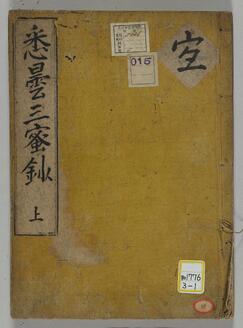 悉曇三密鈔
上
015
1776
3-1